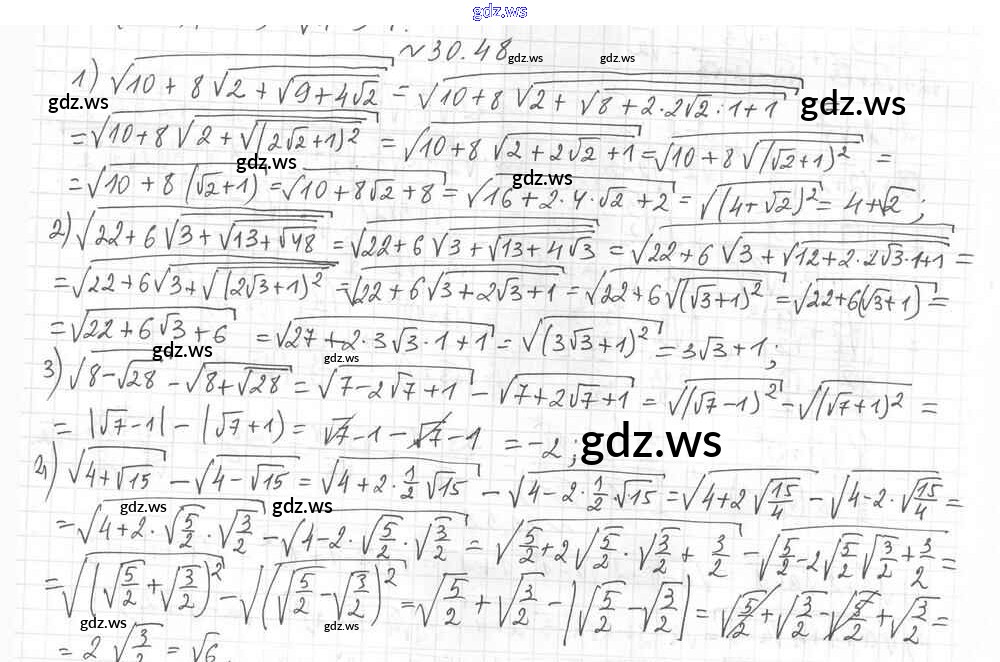 gdz.ws
~30.48
gdz.ws gdz.ws
1) √(10 + 8√(2 + √(9+4√2))) = √(10+8√(2+√(8+2·2√2·1+1)))
gdz.ws gdz.ws
= √(10+8√(2+√((2√2+1)²))) = √(10+8√(2+2√2+1)) = √(10+8√((√2+1)²)) =
gdz.ws gdz.ws
= √(10+8(√2+1)) = √(10+8√2+8) = √(16+2·4·√2+2) = √((4+√2)²) = 4+√2;
2) √(22+6√(3+√(13+√48))) = √(22+6√(3+√(13+4√3))) = √(22+6√(3+√(12+2·2√3·1+1))) =
= √(22+6√(3+√((2√3+1)²))) = √(22+6√(3+2√3+1)) = √(22+6√((√3+1)²)) = √(22+6(√3+1)) =
= √(22+6√3+6) = √(27+2·3√3·1+1) = √((3√3+1)²) = 3√3+1;
gdz.ws gdz.ws
3) √(8-√28) - √(8+√28) = √(7-2√7+1) - √(7+2√7+1) = √((√7-1)²) - √((√7+1)²) =
= |√7-1| - |√7+1) = √7-1-√7-1 = -2;
gdz.ws
4) √(4+√15) - √(4-√15) = √(4+2·1/2√15) - √(4-2·1/2·√15) = √(4+2√(15/4)) - √(4-2·√(15/4)) =
gdz.ws gdz.ws
= √(4+2·√(5/2)·√(3/2)) - √(4-2·√(5/2)·√(3/2)) = √(5/2+2√(5/2)·√(3/2)+3/2) - √(5/2-2√(5/2)√(3/2)+3/2) =
= √((√(5/2)+√(3/2))²) - √((√(5/2)-√(3/2))²) = √(5/2)+√(3/2) - |√(5/2)-√(3/2)| = √(5/2)+√(3/2)-√(5/2)+√(3/2) =
gdz.ws gdz.ws
= 2√(3/2) = √6.